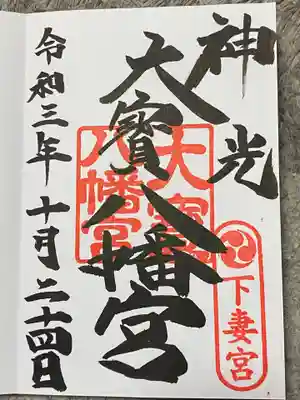 神光
大寶八幡宮
大寶
八幡宮
下妻宮
令和三年十月二十四日